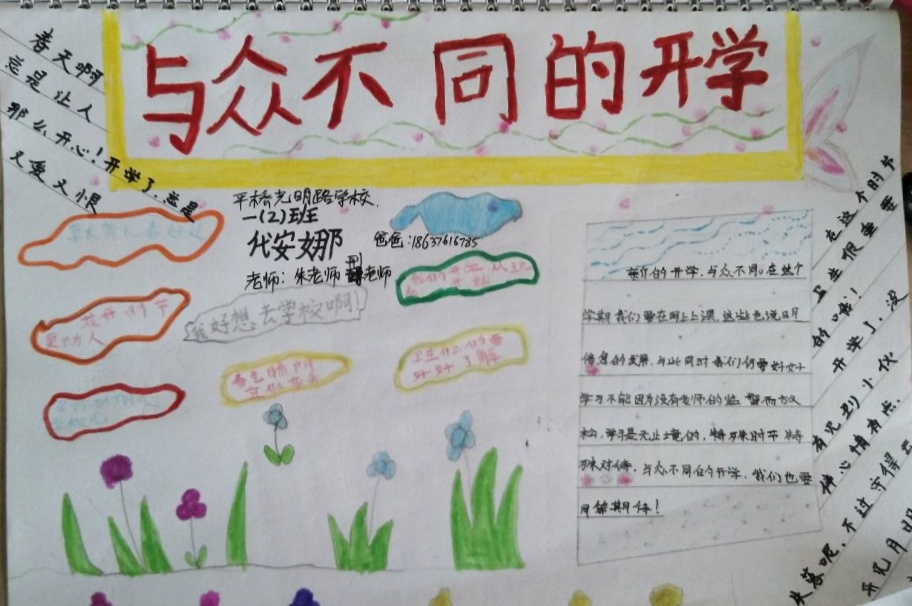 与众不同的开学
春天啊
总是让人
那么开心!开学了,总是
又爱又恨
平桥光明路学校
一(2)班
代安娜
爸爸:18637616785
老师:朱老师 邢老师
花开时节
更动人
我好想去学校啊!
卫生
好好了解
我们的开学,与众不同。在这个
学期我们要在网上上课,这些也说明
信息的发展,与此同时我们仍要好好
学习不能因为没有老师的监督而放
松,学习是无止境的,特殊时节特
殊对待,与众不同的开学,我们也要
同样期待!
在这个时节
卫生很重要
的哦!
开学了,没
有见到小伙
伴心情有点
失落呢,不过守得云
开见月明